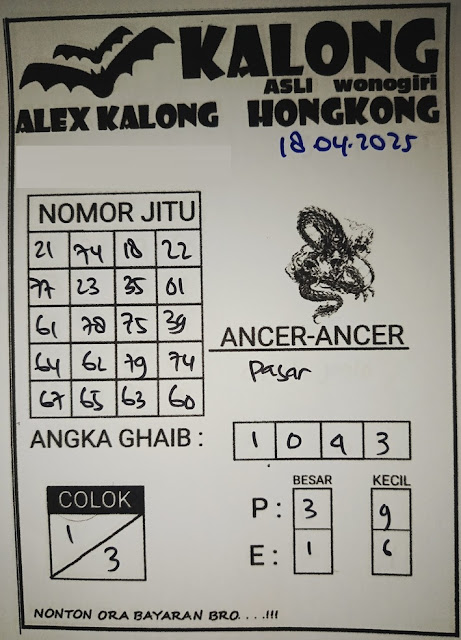 KALONG
ASLI wonogiri
ALEX KALONG HONGKONG
18.04.2025
NOMOR JITU
21 74 18 22
77 23 35 01
61 78 75 39
64 62 79 74
67 65 63 60
ANCER-ANCER
Pasar
ANGKA GHAIB : 1 0 9 3
BESAR KECIL
COLOK
P : 3 9
1
3
E : 1 6
NONTON ORA BAYARAN BRO. . . .!!!